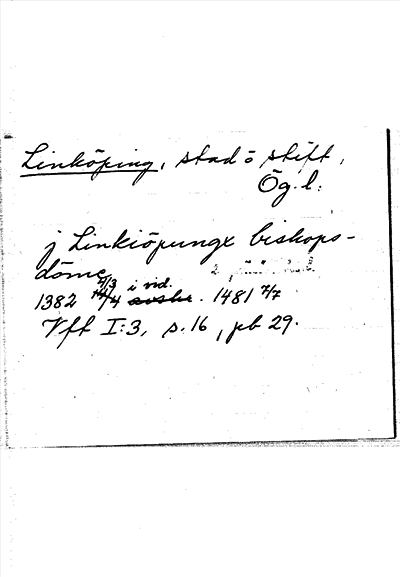 Linköping, stad o stift,
Ög. l.
j Linkiöpungx biskops-
döme
1382 4/4 i vid. 1481 7/7
Vft I:3, s. 16, pb 29.